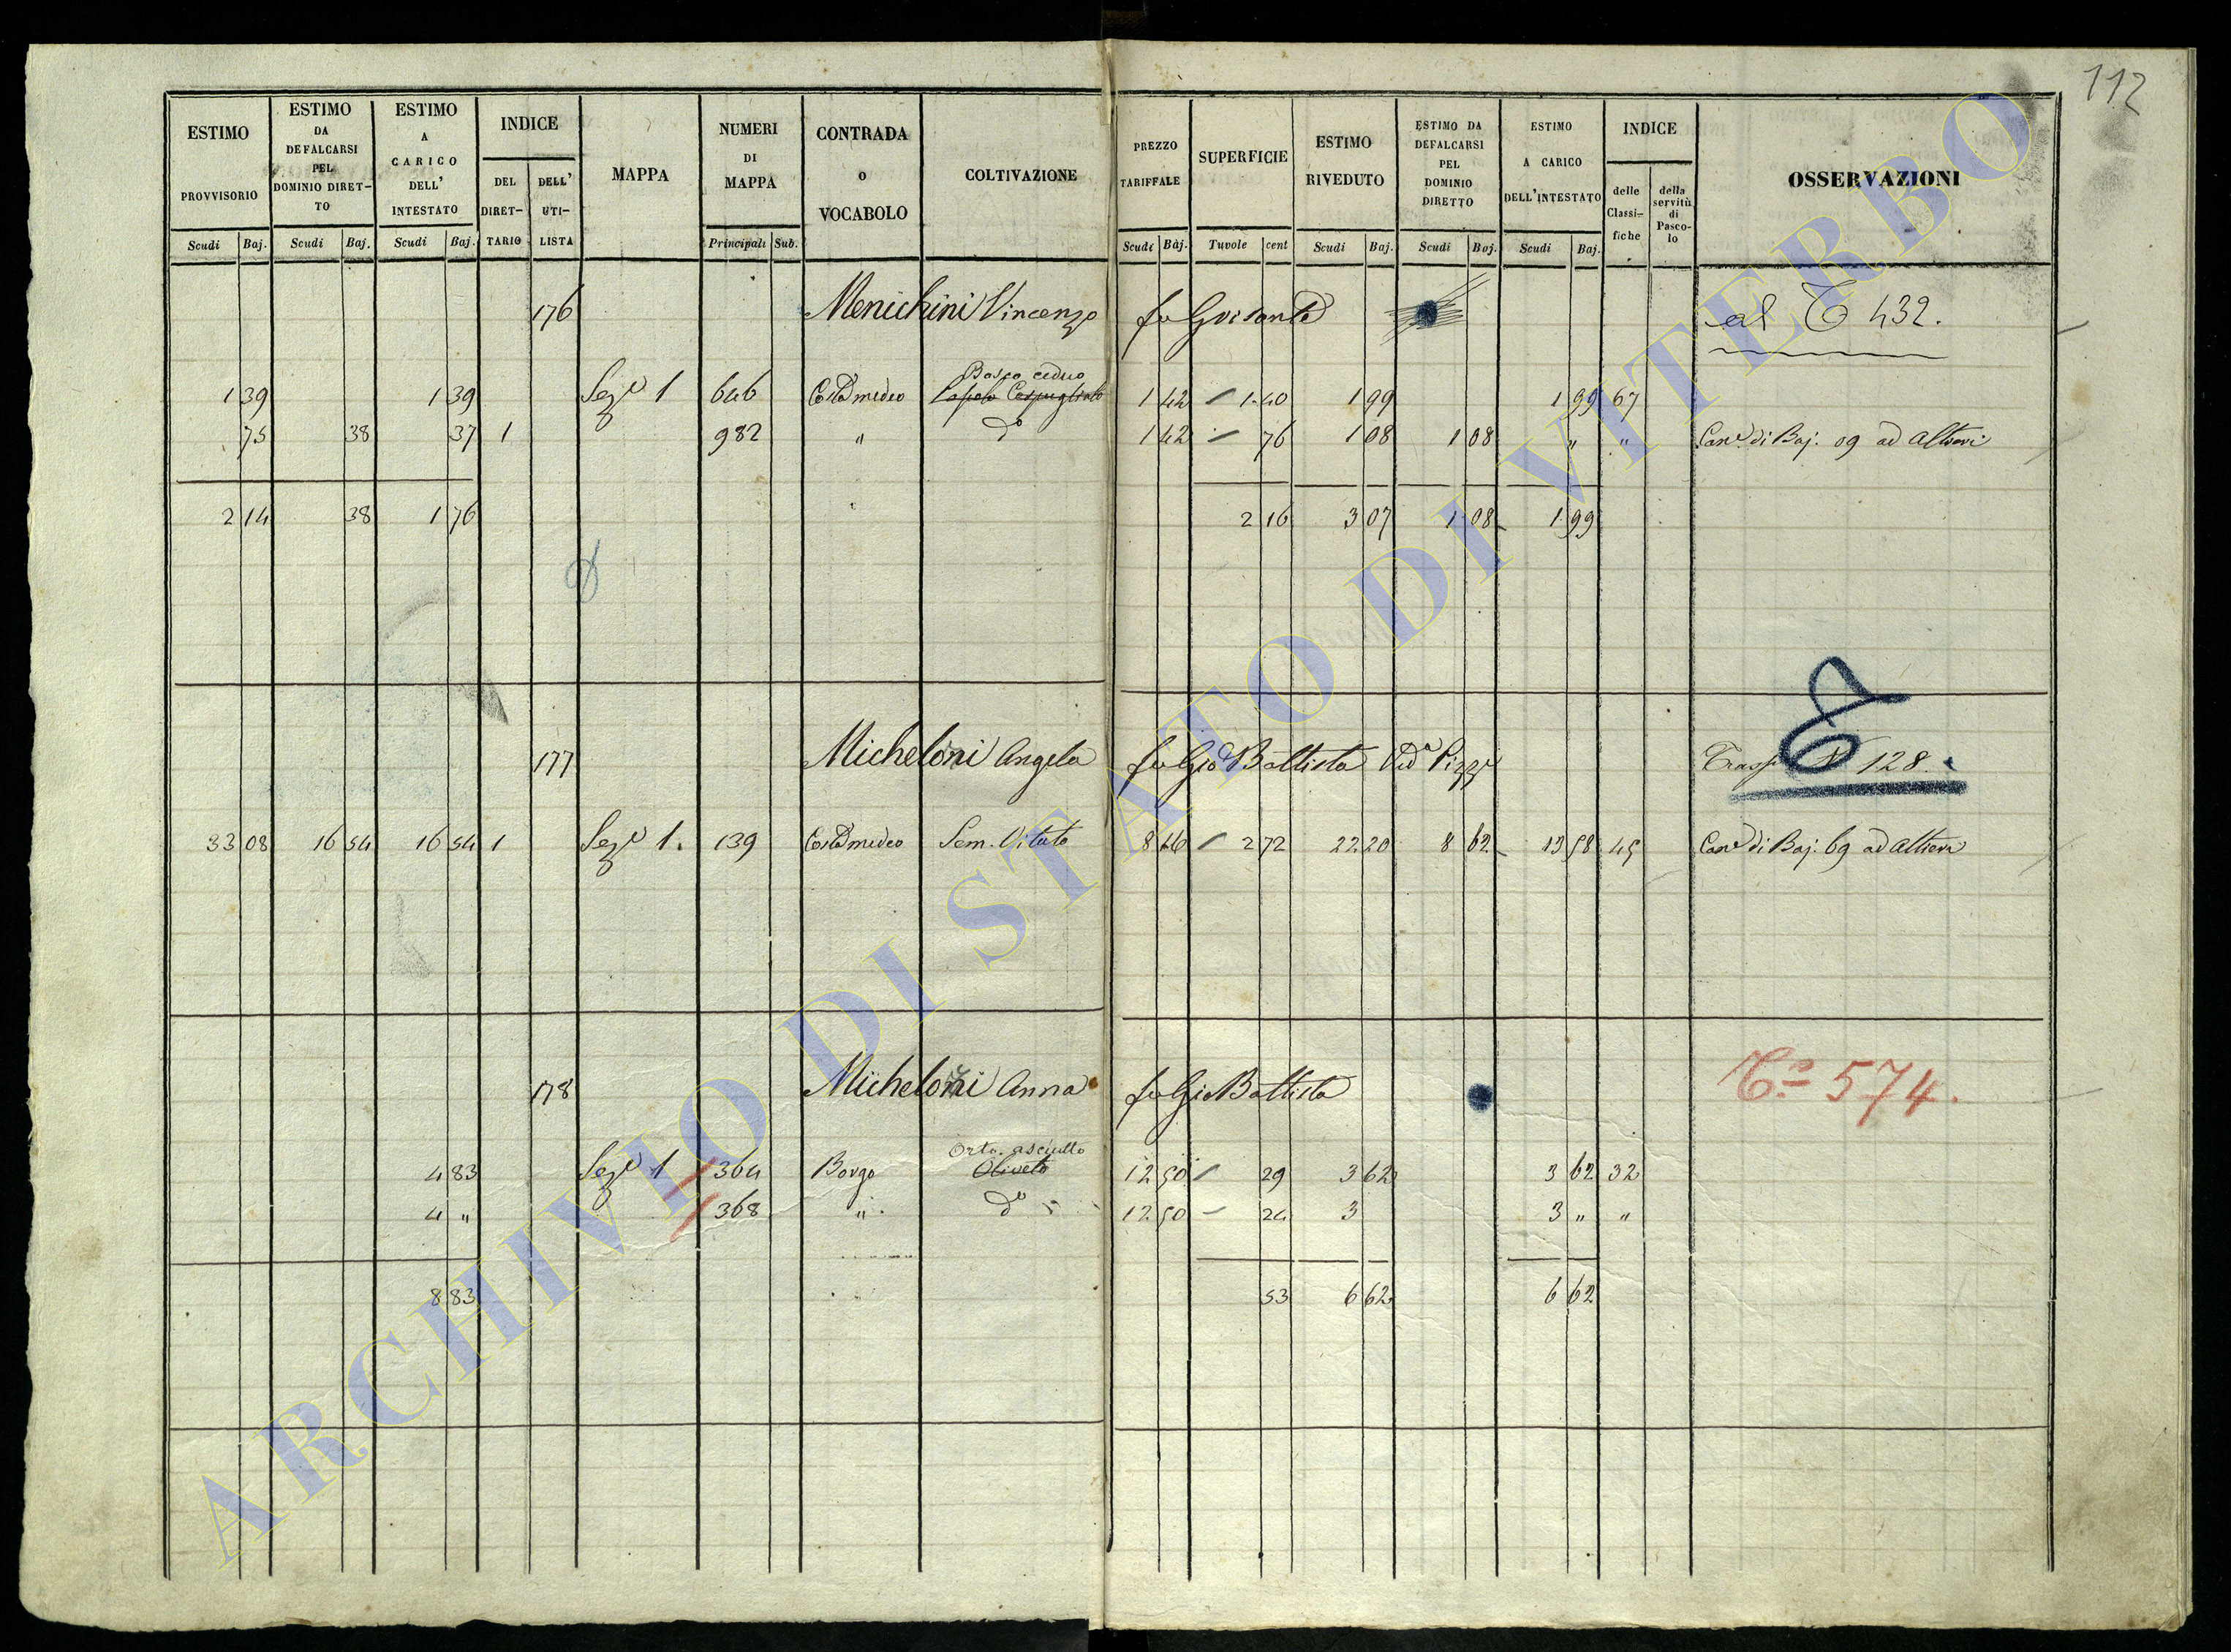 112
ESTIMO PROVVISORIO
ESTIMO DA DEFALCARSI PEL DOMINIO DIRET-TO
ESTIMO A CARICO DELL' INTESTATO
INDICE
DEL DIRET-TARIO
DELL' UTI-LISTA
MAPPA
NUMERI DI MAPPA
CONTRADA o VOCABOLO
COLTIVAZIONE
PREZZO TARIFFALE
SUPERFICIE
ESTIMO RIVEDUTO
ESTIMO DA DEFALCARSI PEL DOMINIO DIRETTO
ESTIMO A CARICO DELL'INTESTATO
INDICE
delle Classi-fiche
della servitù di Pasco-lo
OSSERVAZIONI
Scudi Baj. Scudi Baj. Scudi Baj. Principali Sub. Scudi Baj. Tavole cent Scudi Baj. Scudi Baj. Scudi Baj.
176 Menichini Vincenzo fu al T 432.
Bosco ceduo
1 39 1 39 Sez.e 1 646 1 42 1.40 1 99 1 99 67
75 38 37 1 982 " d.o 1 42 76 1 08 1 08 " " Can.e di Baj. 09 ad Altieri
2 14 38 1 76 2 16 3 07 1 08 1 99
177 Micheloni Angela fu Gio Battista Ved.a 128.
33 08 16 54 16 54 1 Sez.e 1. 139 Sem. Vitato 8 16 2 72 22 20 8 62 13 58 45 Can.e di Baj. 69 ad Altieri
178 Micheloni Anna fu Gio Battista T.o 574.
Orto asciutto
4 83 Sez.e 1 364 Borgo Oliveto 12 50 29 3 62 3 62 32
4 " 368 " d.o 12 50 24 3 3 " "
8 83 53 6 62 6 62
ARCHIVIO DI STATO DI VITERBO